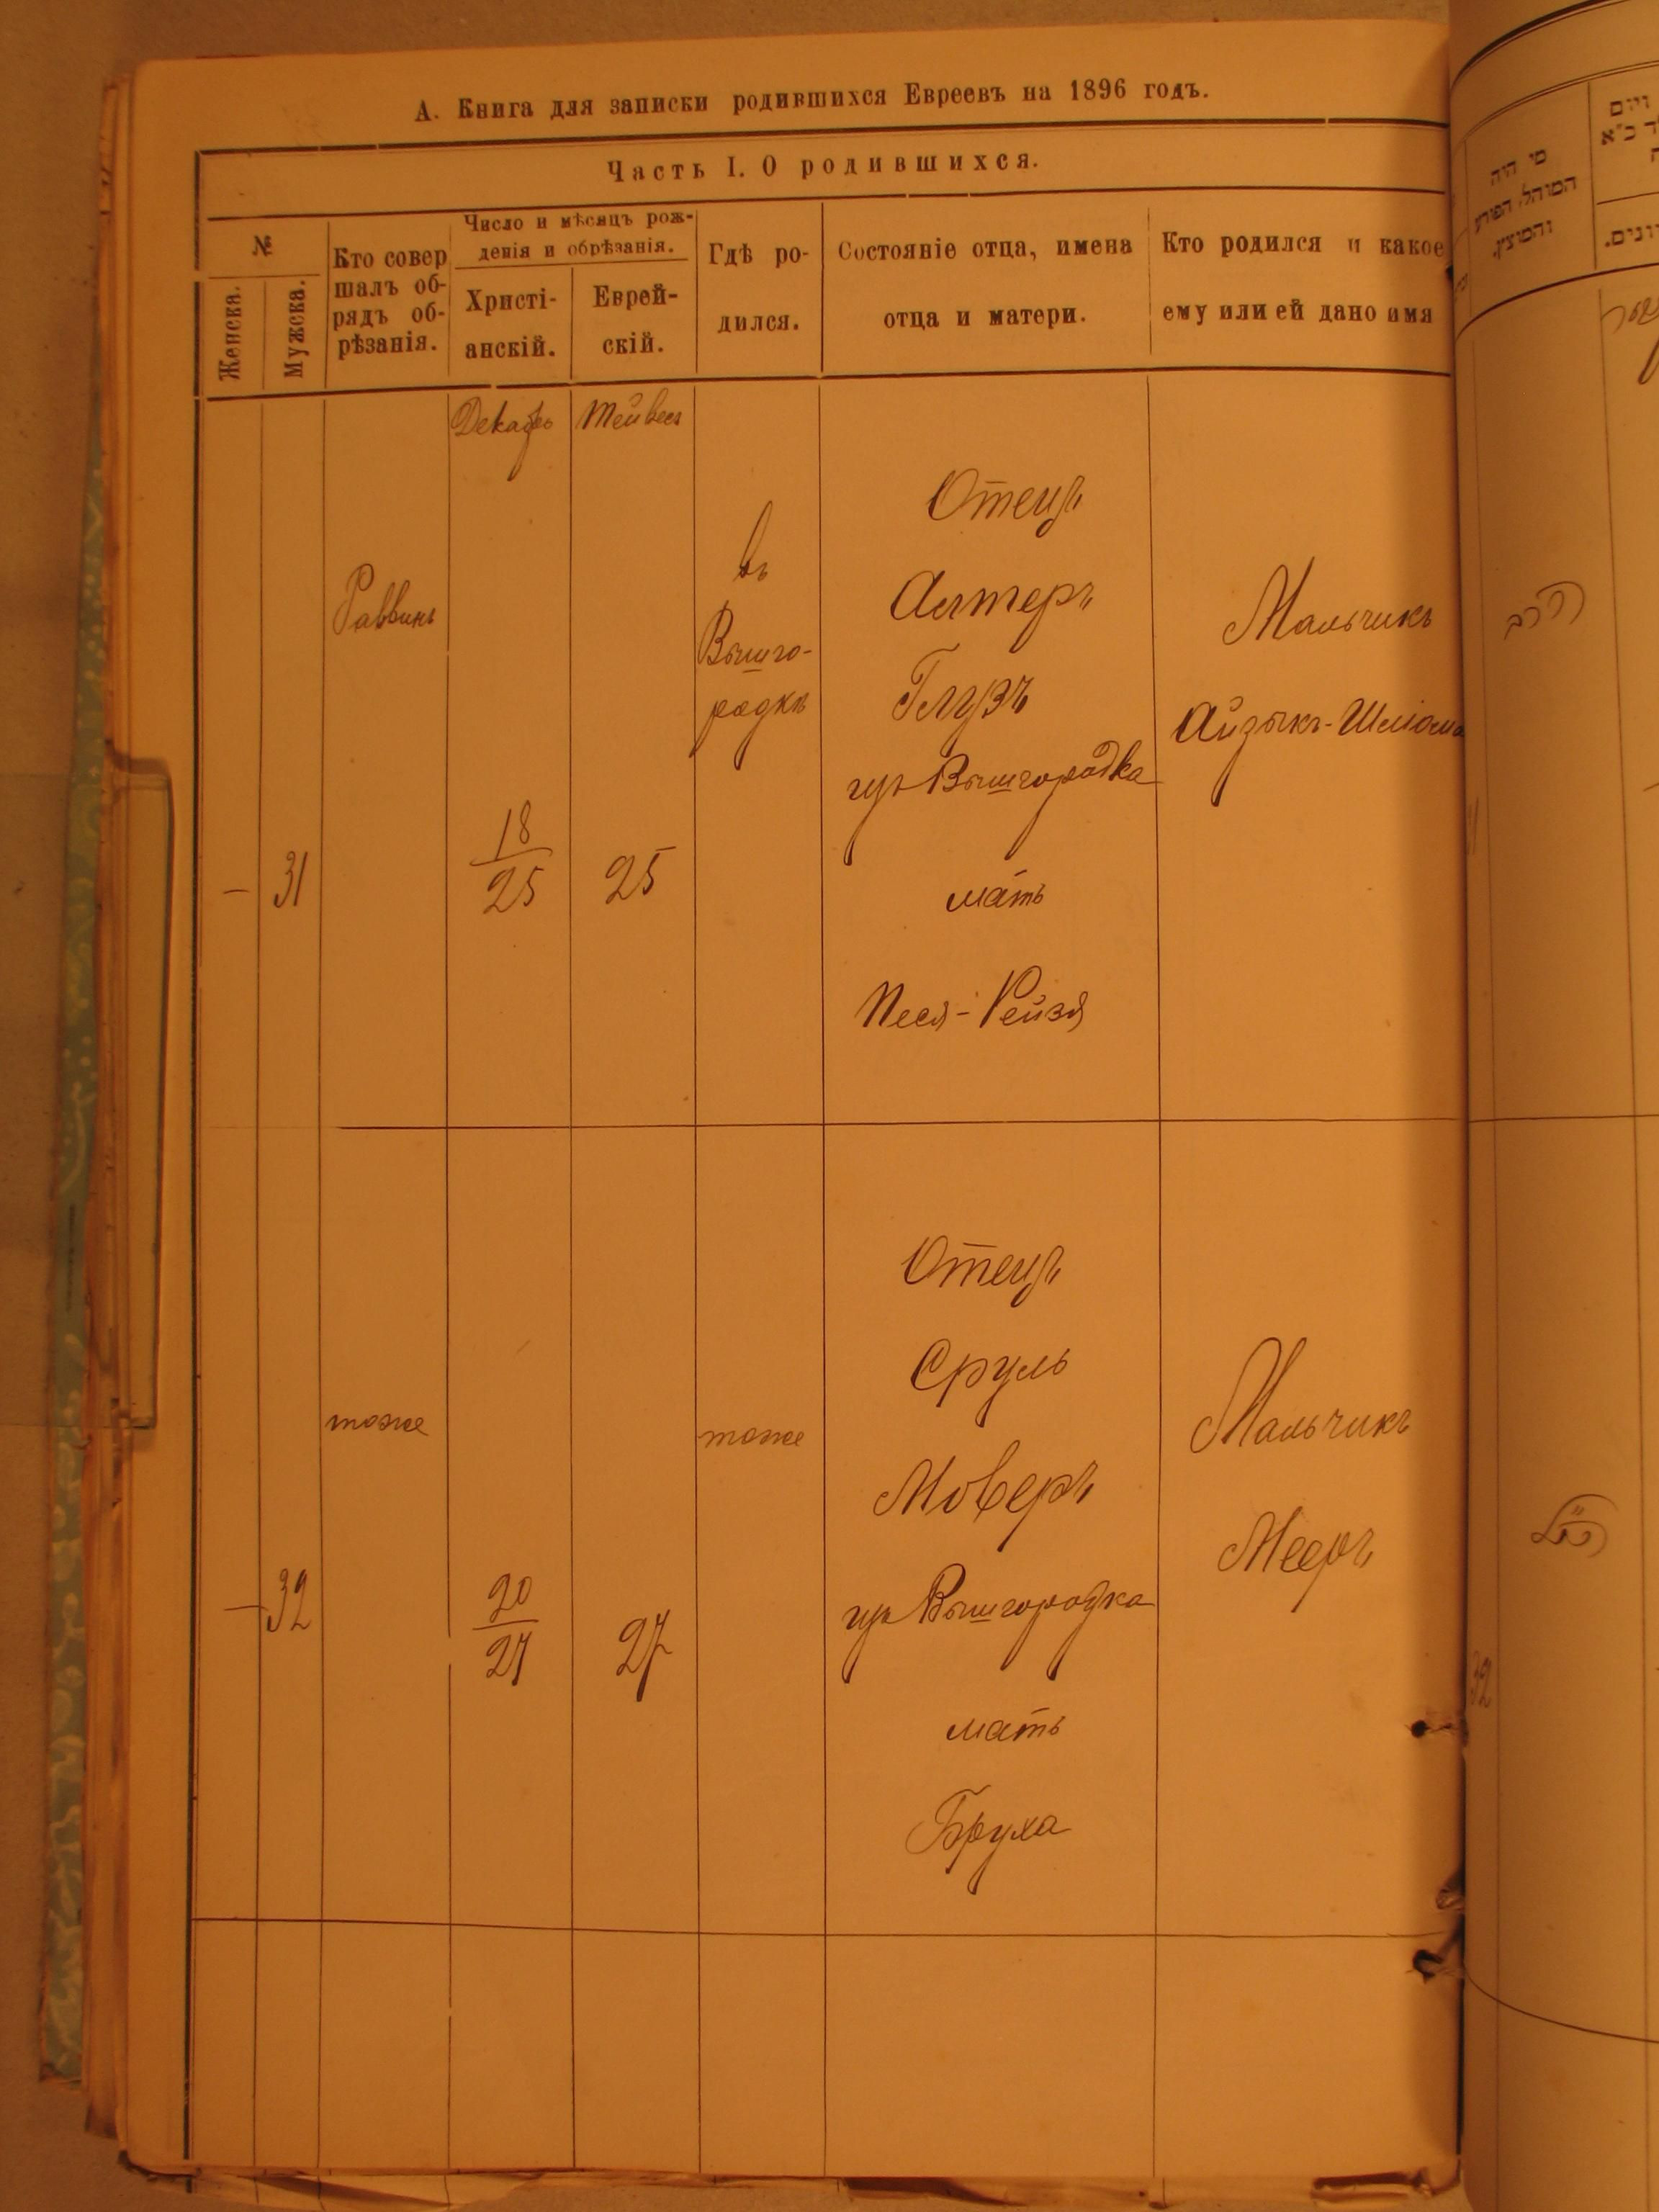 А. Книга для записки родившихся Евреевъ на 1896 годъ.
Часть I. О родившихся.
№
Женска.
Мужска.
Кто совер
шалъ об-
рядъ об-
рѣзанія.
Число и мѣсяцъ рож-
денія и обрѣзанія.
Христі-
анскій.
Еврей-
скій.
Гдѣ ро-
дился.
Состояніе отца, имена
отца и матери.
Кто родился и какое
ему или ей дано имя
Декабрь
Тейвес
—
31
Раввинъ
18
25
25
въ
Вышго-
родкѣ
Отецъ
Алтеръ
Глузъ
Вышгородка
мать
Песя-Рейзя
Мальчикъ
Айзыкъ-Шлiома
—
32
тоже
20
27
27
тоже
Отецъ
Сруль
Моверъ
Вышгородка
мать
Бруха
Мальчикъ
Мееръ
מי היה
המוהל הפורע
והמוצץ.
הרב
32